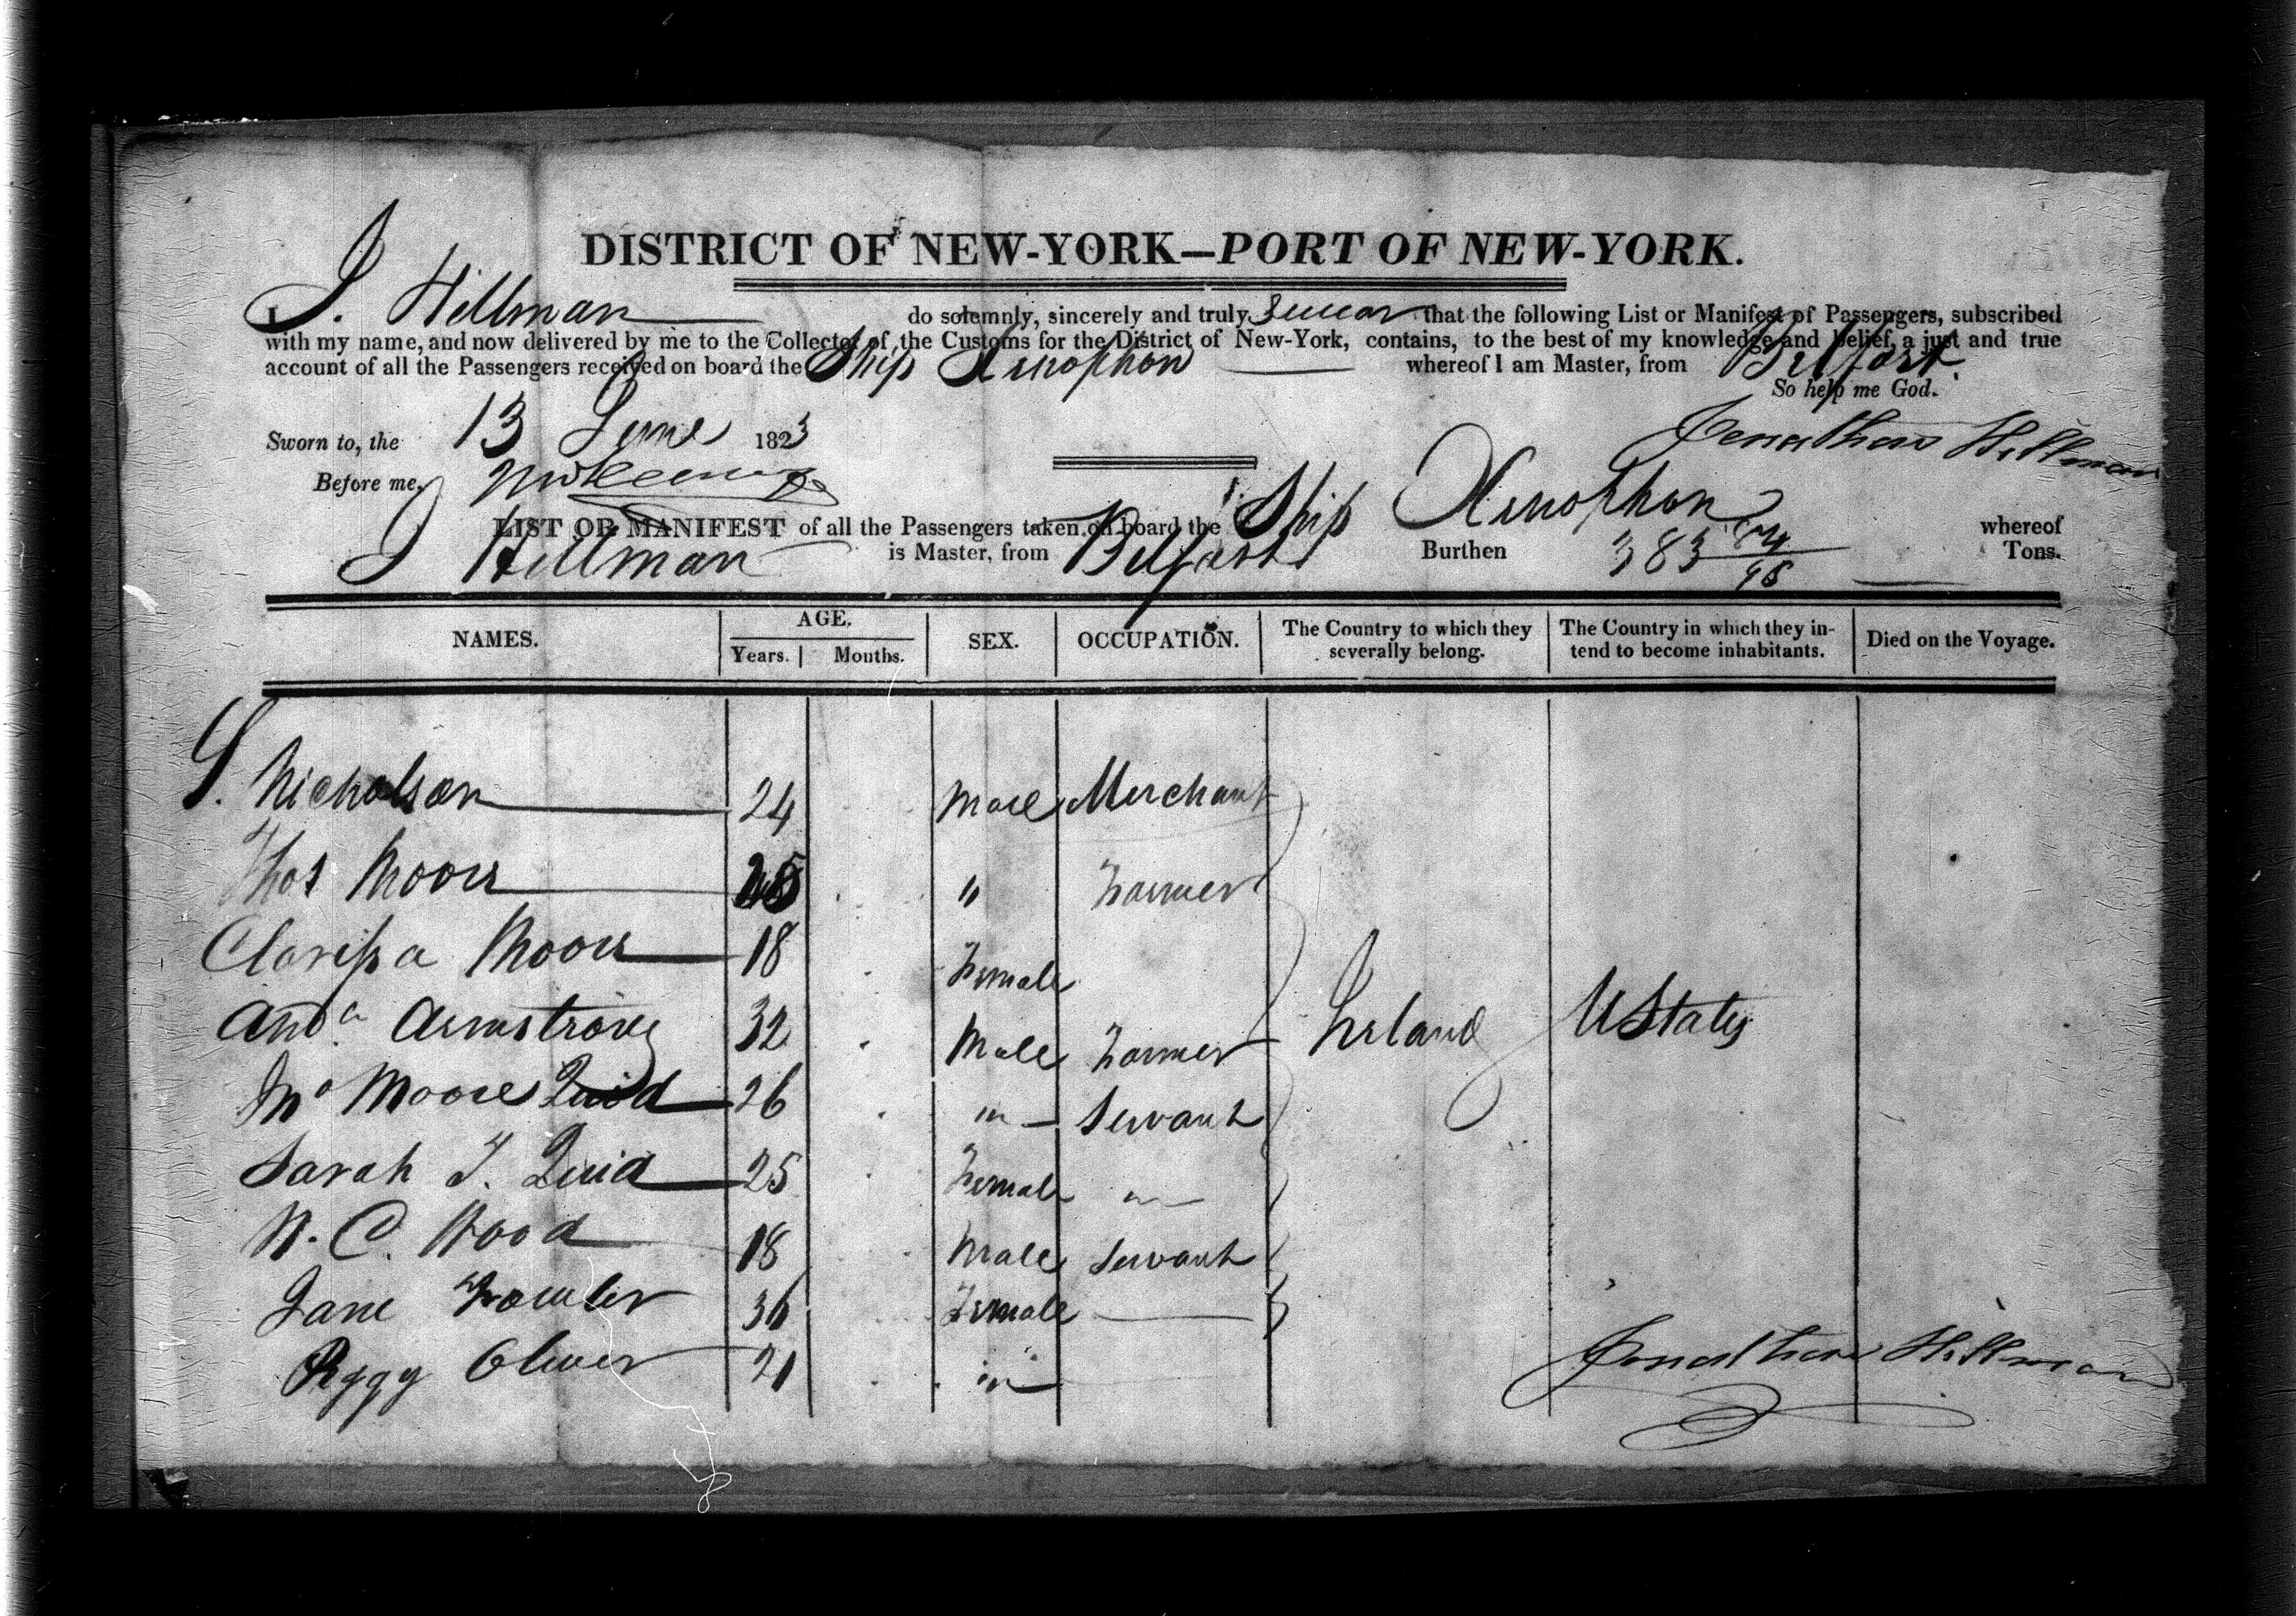 DISTRICT OF NEW-YORK—PORT OF NEW-YORK.
I, J. Hillman do solemnly, sincerely and truly swear that the following List or Manifest of Passengers, subscribed
with my name, and now delivered by me to the Collector of the Customs for the District of New-York, contains, to the best of my knowledge and belief, a just and true
account of all the Passengers received on board the Ship Xenophon whereof I am Master, from Belfast.
So help me God.
Sworn to, the 13 June 1823 Jonathan Hillman
Before me,
LIST OR MANIFEST of all the Passengers taken on board the Ship Xenophon whereof
J Hillman is Master, from Belfast Burthen 383 84/95 Tons.
NAMES. AGE. Years. Months. SEX. OCCUPATION. The Country to which they severally belong. The Country in which they intend to become inhabitants. Died on the Voyage.
S. Nicholson 24 Male Merchant
Thos Moore " Farmer
Clarissa Moore 18 Female
Andw Armstrong 32 Male Farmer Ireland U States
Moore Quid 26 " Servant
Sarah T. Quid 25 Female "
N. C. Wood 18 Male Servant
Jane Fowler 36 Female —
Peggy Oliver 21 "
Jonathan Hillman